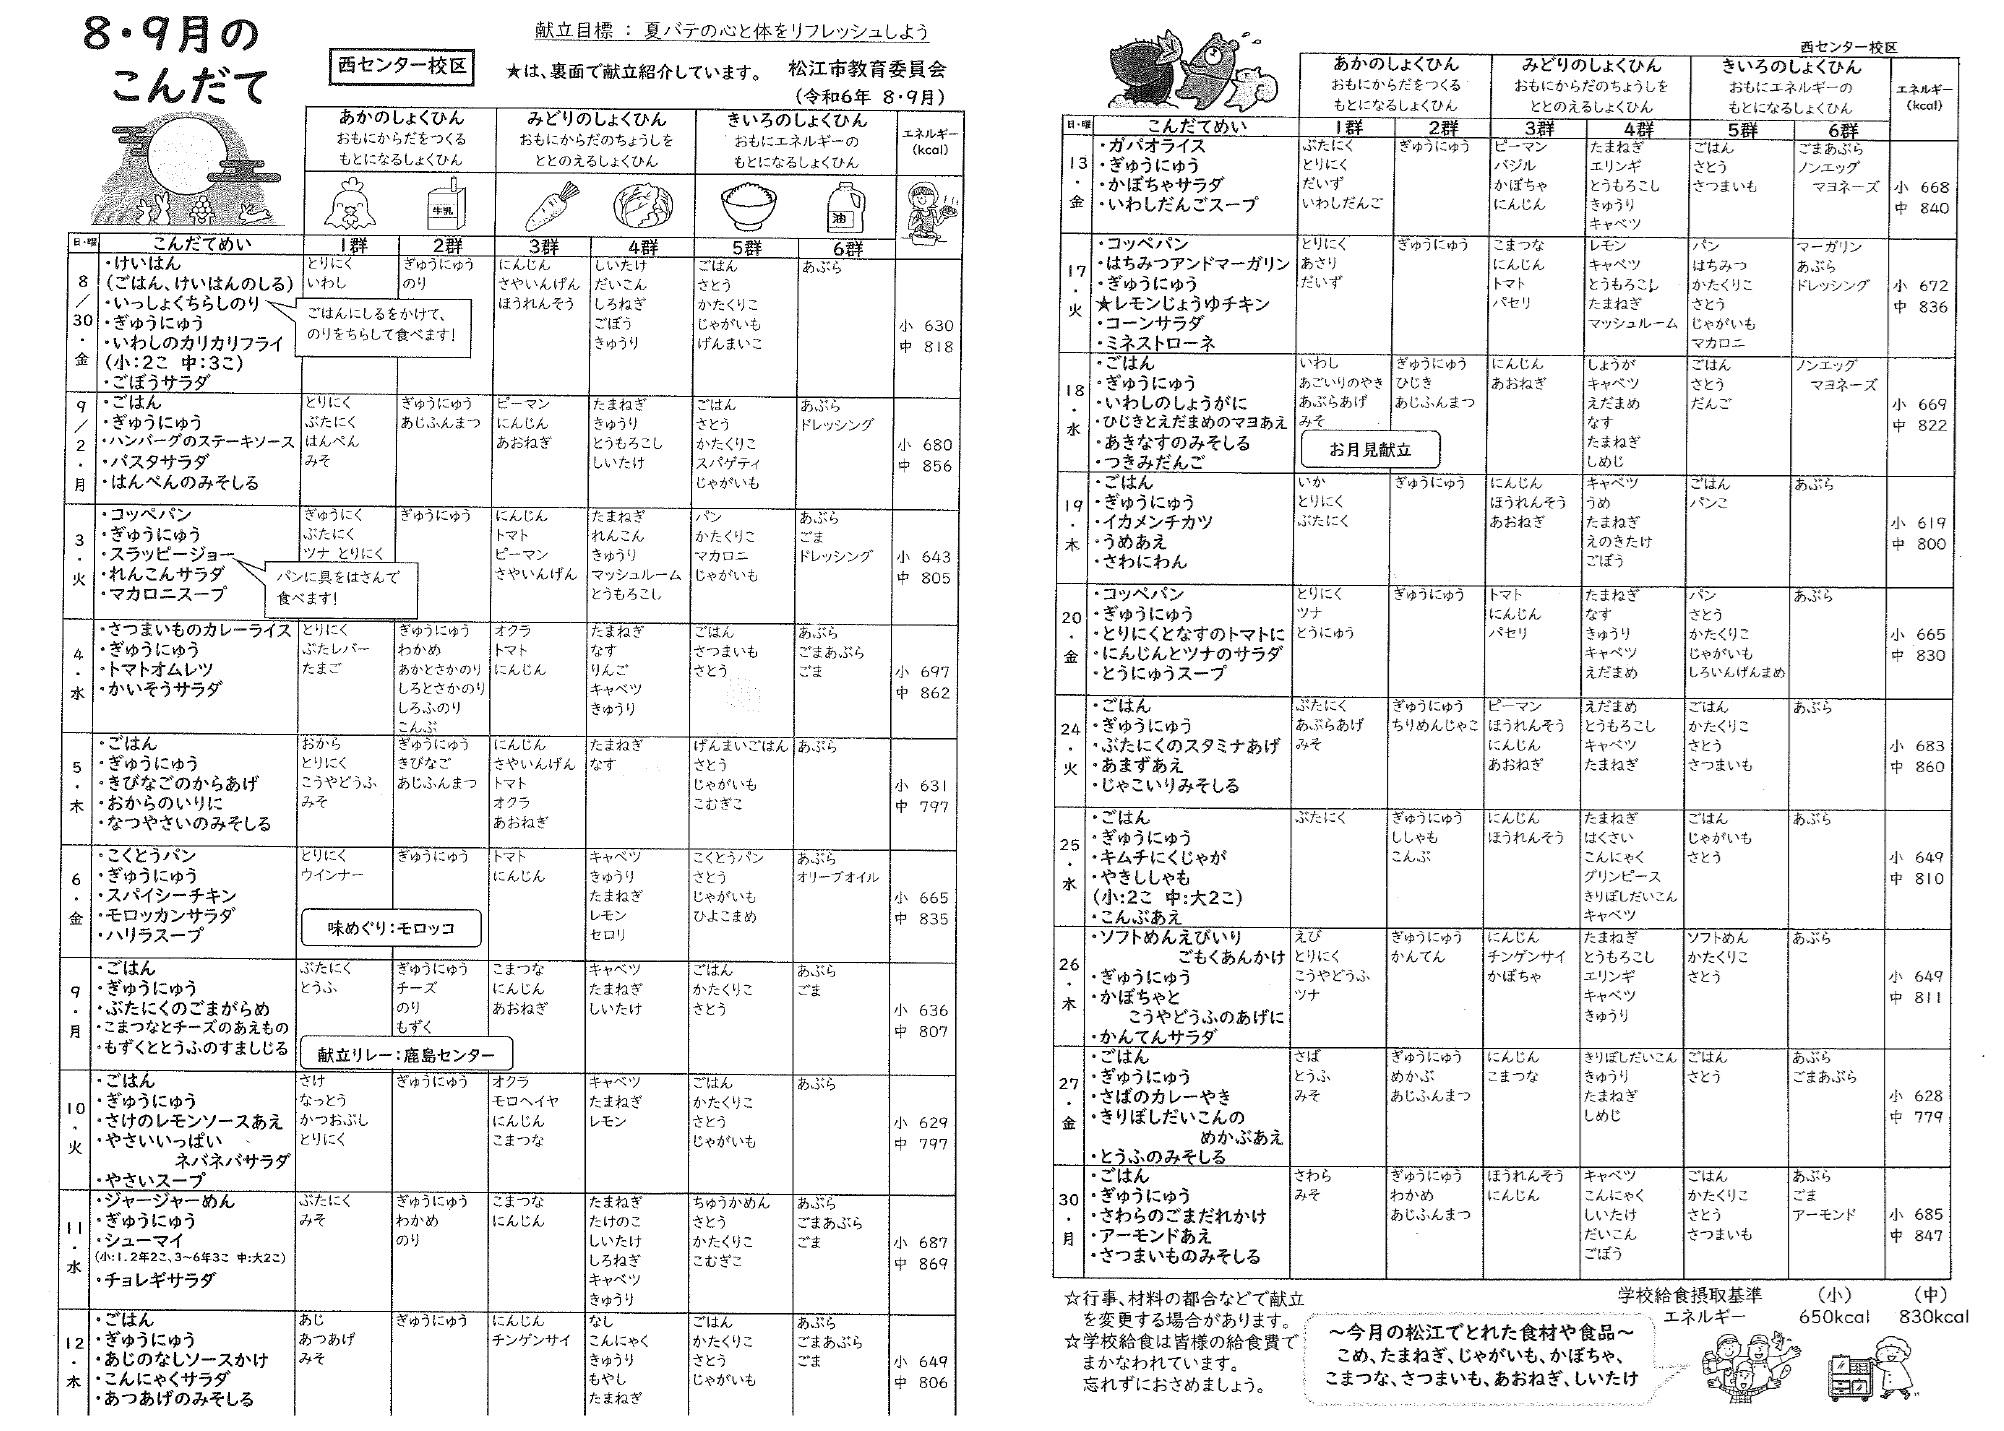 8・9月の
こんだて
献立目標 ： 夏バテの心と体をリフレッシュしよう
西センター校区
★は、裏面で献立紹介しています。 松江市教育委員会
(令和6年 8・9月)
あかのしょくひん みどりのしょくひん きいろのしょくひん エネルギー
おもにからだをつくる おもにからだのちょうしを おもにエネルギーの (kcal)
もとになるしょくひん ととのえるしょくひん もとになるしょくひん
牛乳 油
日・曜 こんだてめい 1群 2群 3群 4群 5群 6群
8/30・金
・けいはん とりにく ぎゅうにゅう にんじん しいたけ ごはん あぶら
(ごはん、けいはんのしる) いわし のり さやいんげん だいこん さとう
・いっしょくちらしのり ほうれんそう しろねぎ かたくりこ
ごはんにしるをかけて、
のりをちらして食べます!
・ぎゅうにゅう ごぼう じゃがいも 小 630
・いわしのカリカリフライ きゅうり げんまいこ 中 818
(小:2こ 中:3こ)
・ごぼうサラダ
9/2・月
・ごはん とりにく ぎゅうにゅう ピーマン たまねぎ ごはん あぶら
・ぎゅうにゅう ぶたにく あじふんまつ にんじん きゅうり さとう ドレッシング
・ハンバーグのステーキソース はんぺん あおねぎ とうもろこし かたくりこ 小 680
・パスタサラダ みそ しいたけ スパゲティ 中 856
・はんぺんのみそしる じゃがいも
3・火
・コッペパン ぎゅうにく ぎゅうにゅう にんじん たまねぎ パン あぶら
・ぎゅうにゅう ぶたにく トマト れんこん かたくりこ ごま
・スラッピージョー ツナ とりにく ピーマン きゅうり マカロニ ドレッシング 小 643
・れんこんサラダ さやいんげん マッシュルーム じゃがいも 中 805
・マカロニスープ とうもろこし
パンに具をはさんで
食べます!
4・水
・さつまいものカレーライス とりにく ぎゅうにゅう オクラ たまねぎ ごはん あぶら
・ぎゅうにゅう ぶたレバー わかめ トマト なす さつまいも ごまあぶら
・トマトオムレツ たまご あかとさかのり にんじん りんご さとう ごま 小 697
・かいそうサラダ しろとさかのり キャベツ 中 862
しろふのり きゅうり
こんぶ
5・木
・ごはん おから ぎゅうにゅう にんじん たまねぎ げんまいごはん あぶら
・ぎゅうにゅう とりにく きびなご さやいんげん なす さとう
・きびなごのからあげ こうやどうふ あじふんまつ トマト じゃがいも 小 631
・おからのいりに みそ オクラ こむぎこ 中 797
・なつやさいのみそしる あおねぎ
6・金
・こくとうパン とりにく ぎゅうにゅう トマト キャベツ こくとうパン あぶら
・ぎゅうにゅう ウインナー にんじん きゅうり さとう オリーブオイル
・スパイシーチキン たまねぎ じゃがいも 小 665
・モロッカンサラダ レモン ひよこまめ 中 835
・ハリラスープ セロリ
味めぐり:モロッコ
9・月
・ごはん ぶたにく ぎゅうにゅう こまつな キャベツ ごはん あぶら
・ぎゅうにゅう とうふ チーズ にんじん たまねぎ かたくりこ ごま
・ぶたにくのごまがらめ のり あおねぎ しいたけ さとう 小 636
・こまつなとチーズのあえもの もずく 中 807
・もずくととうふのすましじる
献立リレー:鹿島センター
10・火
・ごはん さけ ぎゅうにゅう オクラ キャベツ ごはん あぶら
・ぎゅうにゅう なっとう モロヘイヤ たまねぎ かたくりこ
・さけのレモンソースあえ かつおぶし にんじん レモン さとう 小 629
・やさいいっぱい とりにく こまつな じゃがいも 中 797
ネバネバサラダ
・やさいスープ
11・水
・ジャージャーめん ぶたにく ぎゅうにゅう こまつな たまねぎ ちゅうかめん あぶら
・ぎゅうにゅう みそ わかめ にんじん たけのこ さとう ごまあぶら
・シューマイ のり しいたけ かたくりこ ごま 小 687
(小:1.2年2こ、3~6年3こ 中:大2こ) しろねぎ こむぎこ 中 869
・チョレギサラダ キャベツ
きゅうり
12・木
・ごはん あじ ぎゅうにゅう にんじん なし ごはん あぶら
・ぎゅうにゅう あつあげ チンゲンサイ こんにゃく かたくりこ ごまあぶら
・あじのなしソースかけ みそ きゅうり さとう ごま 小 649
・こんにゃくサラダ もやし じゃがいも 中 806
・あつあげのみそしる たまねぎ
西センター校区
あかのしょくひん みどりのしょくひん きいろのしょくひん エネルギー
おもにからだをつくる おもにからだのちょうしを おもにエネルギーの (kcal)
もとになるしょくひん ととのえるしょくひん もとになるしょくひん
日・曜 こんだてめい 1群 2群 3群 4群 5群 6群
13・金
・ガパオライス ぶたにく ぎゅうにゅう ピーマン たまねぎ ごはん ごまあぶら
・ぎゅうにゅう とりにく バジル エリンギ さとう ノンエッグ
・かぼちゃサラダ だいず かぼちゃ とうもろこし さつまいも マヨネーズ 小 668
・いわしだんごスープ いわしだんご にんじん きゅうり 中 840
キャベツ
17・火
・コッペパン とりにく ぎゅうにゅう こまつな レモン パン マーガリン
・はちみつアンドマーガリン あさり にんじん キャベツ はちみつ あぶら
・ぎゅうにゅう だいず トマト とうもろこし かたくりこ ドレッシング 小 672
★レモンじょうゆチキン パセリ たまねぎ さとう 中 836
・コーンサラダ マッシュルーム じゃがいも
・ミネストローネ マカロニ
18・水
・ごはん いわし ぎゅうにゅう にんじん しょうが ごはん ノンエッグ
・ぎゅうにゅう あごいりのやき ひじき あおねぎ キャベツ さとう マヨネーズ
・いわしのしょうがに あぶらあげ あじふんまつ えだまめ だんご 小 669
・ひじきとえだまめのマヨあえ みそ なす 中 822
・あきなすのみそしる たまねぎ
・つきみだんご しめじ
お月見献立
19・木
・ごはん いか ぎゅうにゅう にんじん キャベツ ごはん あぶら
・ぎゅうにゅう とりにく ほうれんそう うめ パンこ
・イカメンチカツ ぶたにく あおねぎ たまねぎ 小 619
・うめあえ えのきたけ 中 800
・さわにわん ごぼう
20・金
・コッペパン とりにく ぎゅうにゅう トマト たまねぎ パン あぶら
・ぎゅうにゅう ツナ にんじん なす さとう
・とりにくとなすのトマトに とうにゅう パセリ きゅうり かたくりこ 小 665
・にんじんとツナのサラダ キャベツ じゃがいも 中 830
・とうにゅうスープ えだまめ しろいんげんまめ
24・火
・ごはん ぶたにく ぎゅうにゅう ピーマン えだまめ ごはん あぶら
・ぎゅうにゅう あぶらあげ ちりめんじゃこ ほうれんそう とうもろこし かたくりこ
・ぶたにくのスタミナあげ みそ にんじん キャベツ さとう 小 683
・あまずあえ あおねぎ たまねぎ さつまいも 中 860
・じゃこいりみそしる
25・水
・ごはん ぶたにく ぎゅうにゅう にんじん たまねぎ ごはん あぶら
・ぎゅうにゅう ししゃも ほうれんそう はくさい じゃがいも
・キムチにくじゃが こんぶ こんにゃく さとう 小 649
・やきししゃも グリンピース 中 810
(小:2こ 中:大2こ) きりぼしだいこん
・こんぶあえ キャベツ
26・木
・ソフトめんえびいり えび ぎゅうにゅう にんじん たまねぎ ソフトめん あぶら
ごもくあんかけ とりにく かんてん チンゲンサイ とうもろこし かたくりこ
・ぎゅうにゅう こうやどうふ かぼちゃ エリンギ さとう 小 649
・かぼちゃと ツナ キャベツ 中 811
こうやどうふのあげに きゅうり
・かんてんサラダ
27・金
・ごはん さば ぎゅうにゅう にんじん きりぼしだいこん ごはん あぶら
・ぎゅうにゅう とうふ めかぶ こまつな きゅうり さとう ごまあぶら
・さばのカレーやき みそ あじふんまつ たまねぎ 小 628
・きりぼしだいこんの しめじ 中 779
めかぶあえ
・とうふのみそしる
30・月
・ごはん さわら ぎゅうにゅう ほうれんそう キャベツ ごはん あぶら
・ぎゅうにゅう みそ わかめ にんじん こんにゃく かたくりこ ごま
・さわらのごまだれかけ あじふんまつ しいたけ さとう アーモンド 小 685
・アーモンドあえ だいこん さつまいも 中 847
・さつまいものみそしる ごぼう
☆行事、材料の都合などで献立
を変更する場合があります。
☆学校給食は皆様の給食費で
まかなわれています。
忘れずにおさめましょう。
学校給食摂取基準 (小) (中)
エネルギー 650kcal 830kcal
～今月の松江でとれた食材や食品～
こめ、たまねぎ、じゃがいも、かぼちゃ、
こまつな、さつまいも、あおねぎ、しいたけ